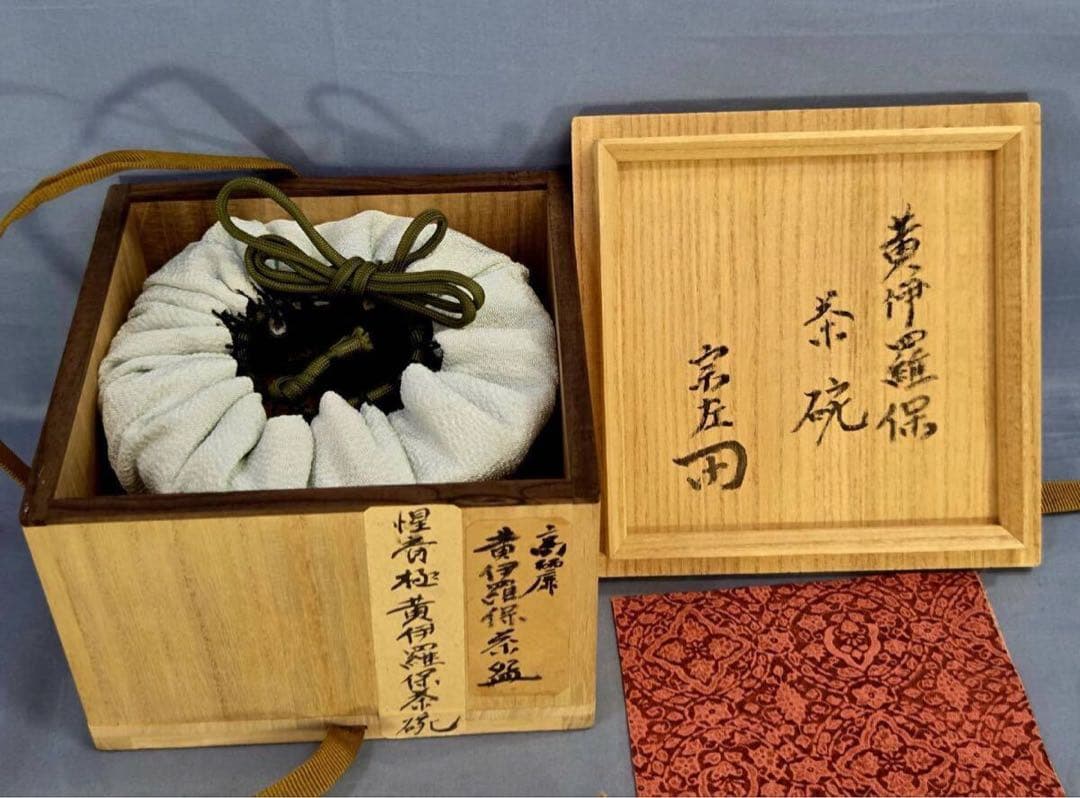 黄伊羅保
茶碗
宗左
高麗
黄伊羅保茶碗
惺斎極 黄伊羅保茶碗